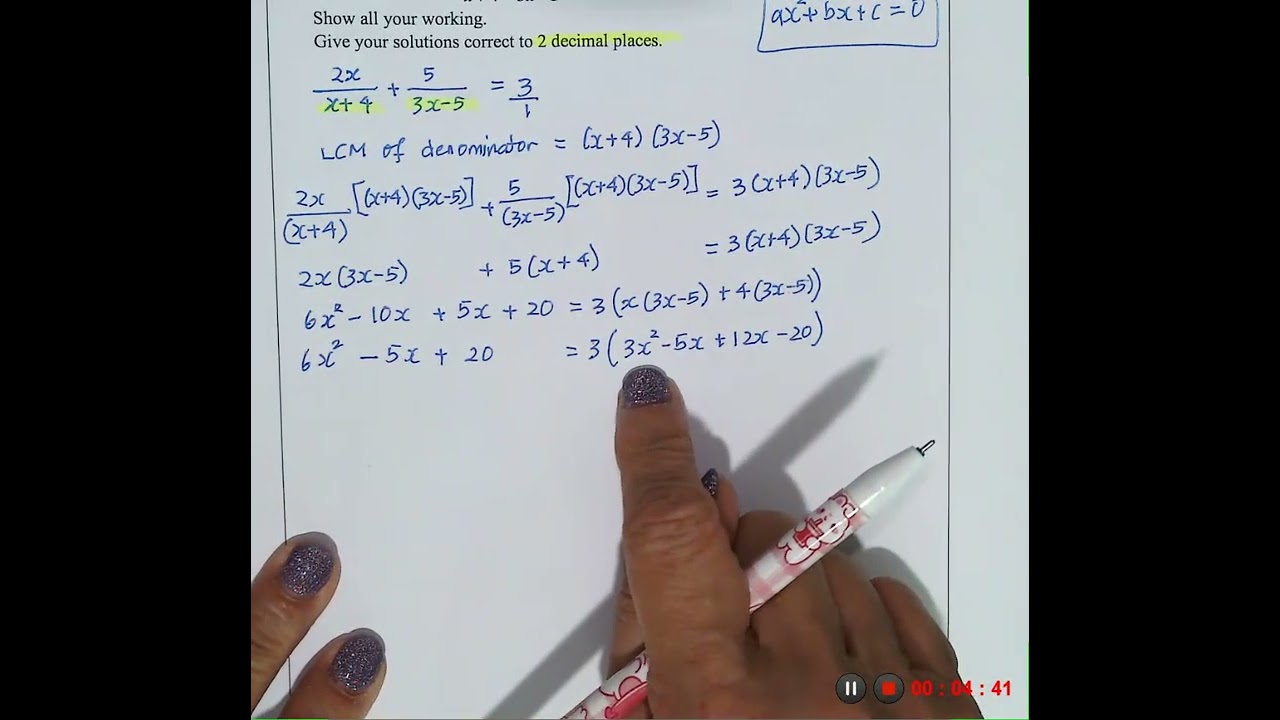 ax²+bx+c=0
Show all your working.
Give your solutions correct to 2 decimal places.
2x/(x+4) + 5/(3x-5) = 3/1
LCM of denominator = (x+4)(3x-5)
2x/(x+4) [(x+4)(3x-5)] + 5/(3x-5) [(x+4)(3x-5)] = 3(x+4)(3x-5)
2x(3x-5) + 5(x+4) = 3(x+4)(3x-5)
6x² - 10x + 5x + 20 = 3(x(3x-5) + 4(3x-5))
6x² - 5x + 20 = 3(3x² - 5x + 12x - 20)
00 : 04 : 41